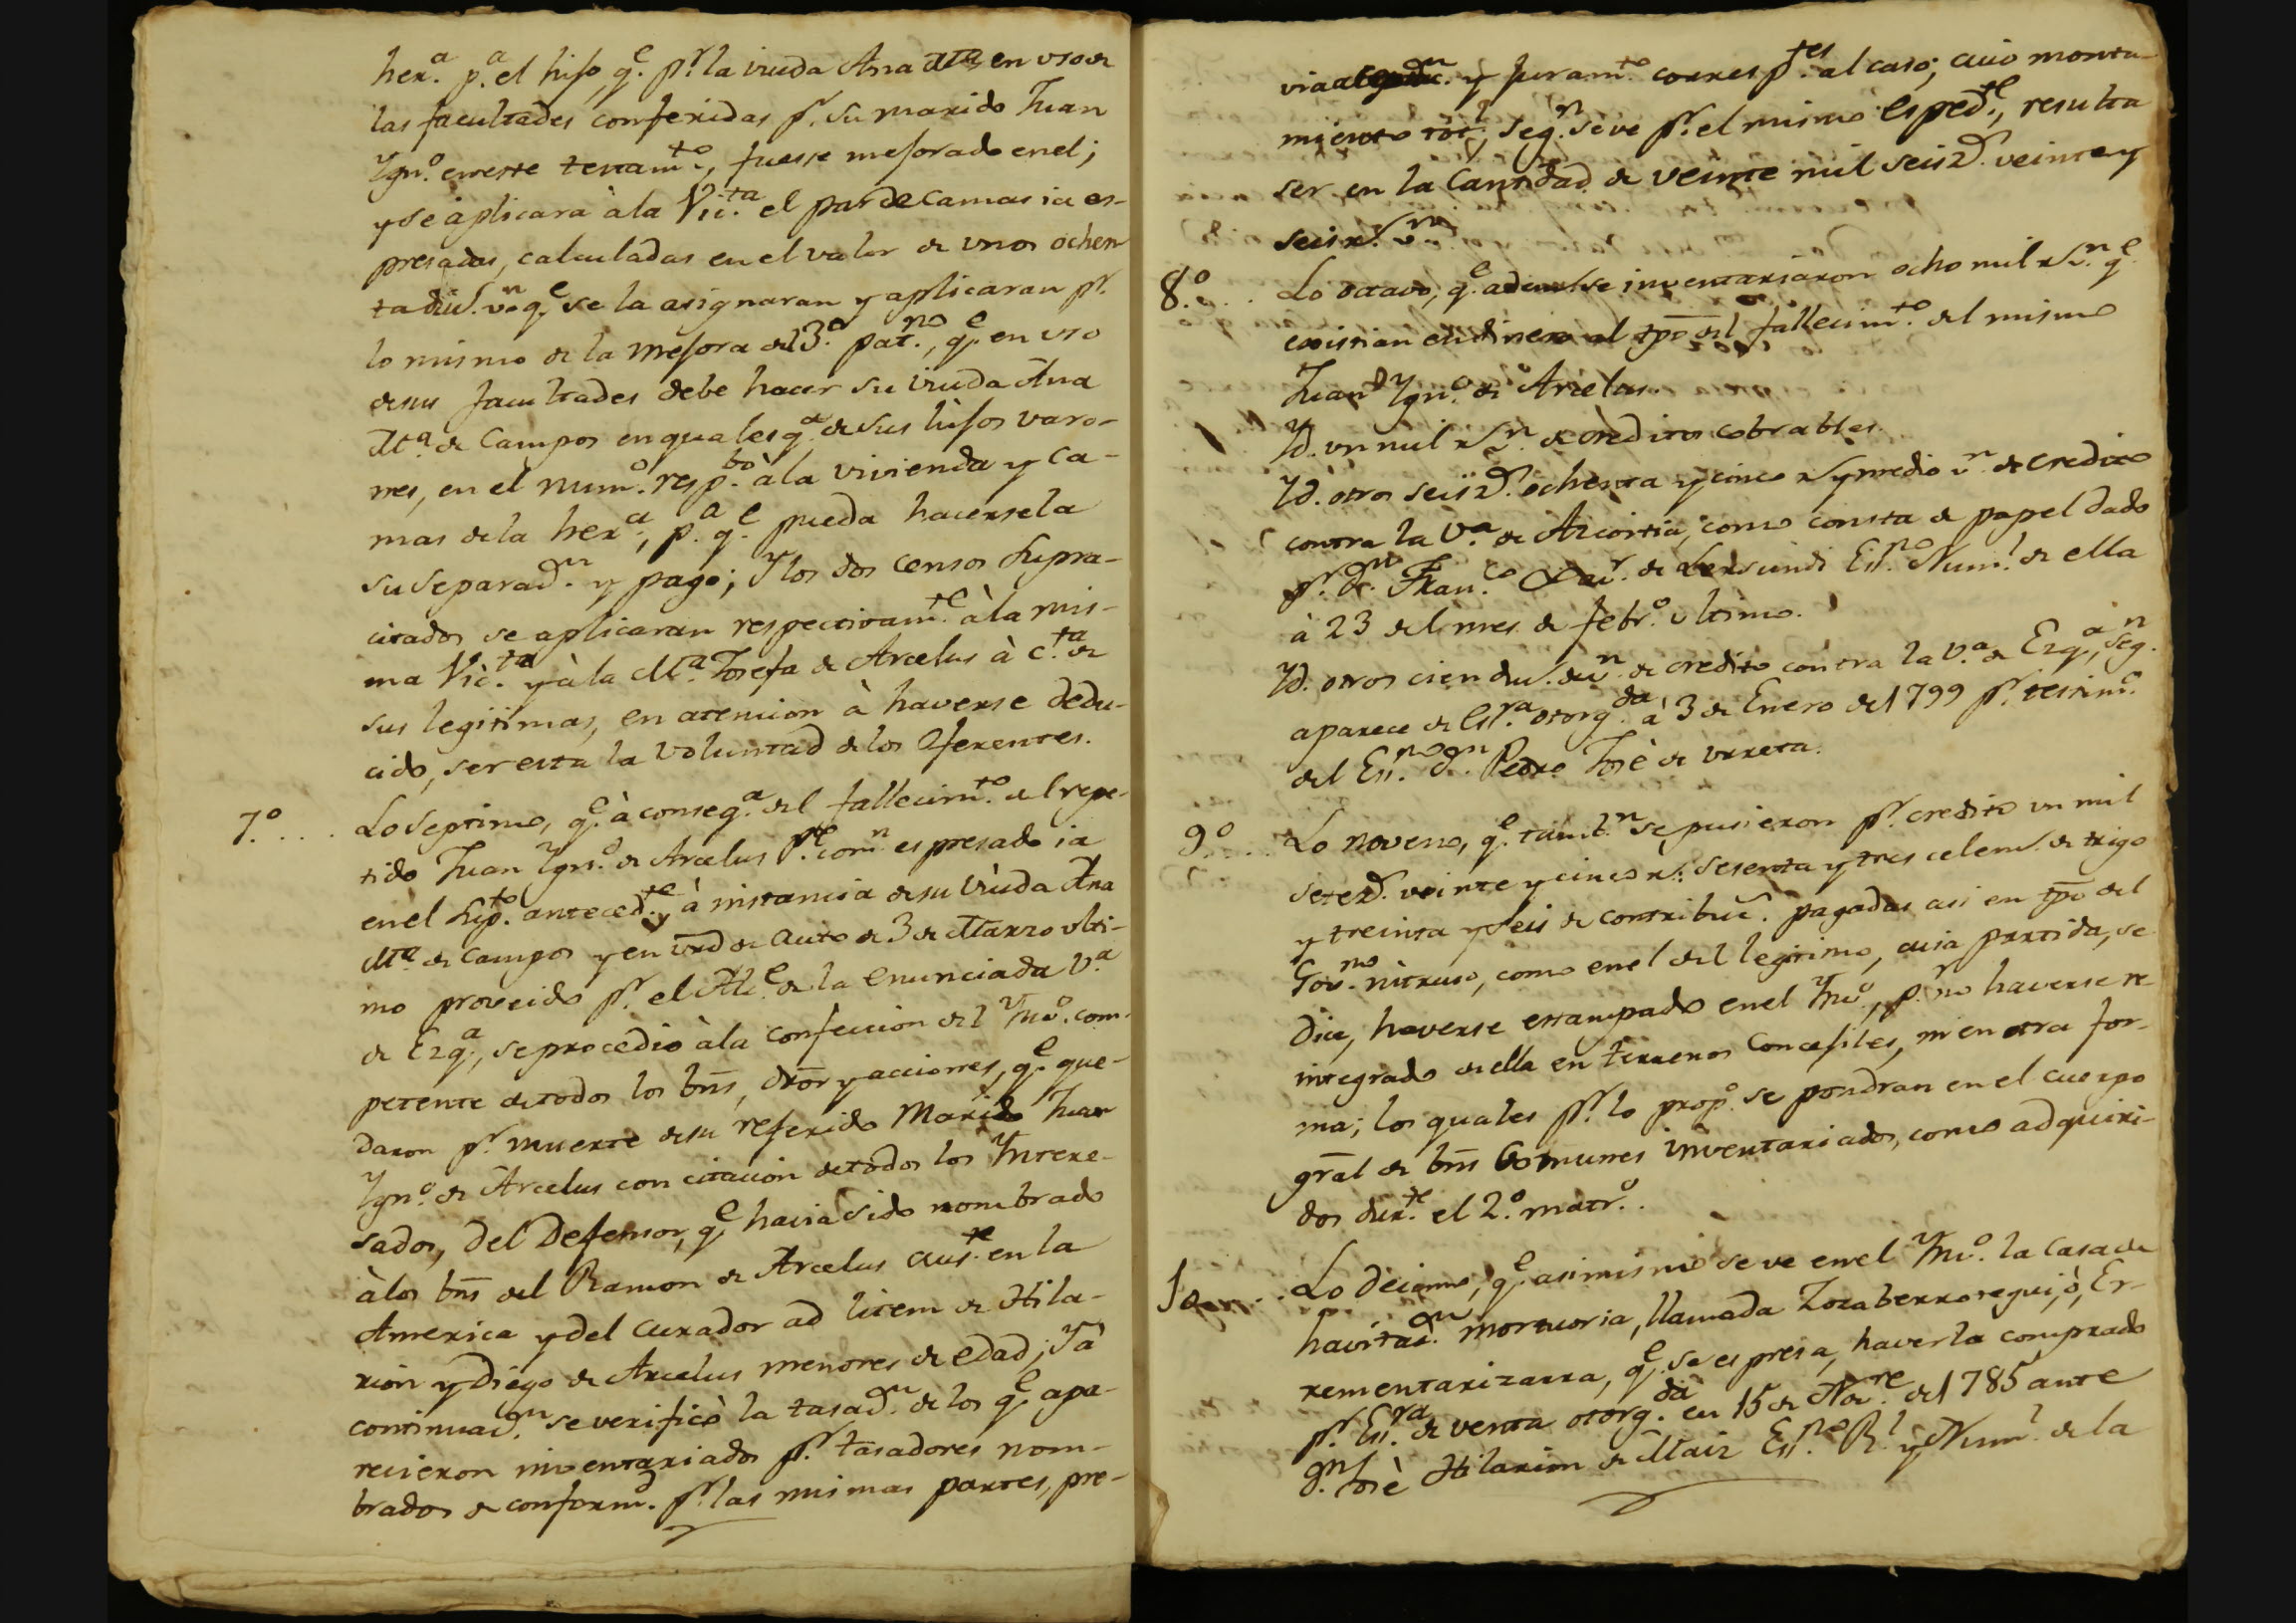 her.ª p.ª el hijo, q.e p.r la viuda Ana M.ª en uso de
las facultades conferidas p.r su marido Juan
Ygn.º en este testam.to, fuesse mejorado en el;
y se aplicara à la Vic.ta el par de camas ia es-
presadas, calculadas en el valor de unos ochen
ta du.s v.n q.e se la asignaran y aplicaran p.r
lo mismo de la mejora del 3.º pat.no, q.e en uso
de sus facultades debe hacer su viuda Ana
M.ª de Campos en qualesq.ª de sus hijos varo-
nes, en el num.º resp.bo à la vivienda y ca-
mas de la her.ª, p.ª q.e pueda hacersela
su separac.n y pago; Y los dos censos supra-
citados se aplicaran respectivam.te à la mis-
ma Vic.ta y à la M.ª Josefa de Arcelus à c.ta de
sus legitimas, en atencion à haverse dedu-
cido, ser esta la voluntad de los Oferentes.
7.º... Lo septimo, q.e à conseq.ª del fallecim.to del repe-
tido Juan Ygn.º de Arcelus p.e com.n espresado ia
en el sup.to anteced.te, y à instancia de su Viuda Ana
M.ª de Campos y en vrd de auto de 3 de Marzo ulti-
mo proveido p.r el Alc.e de la enunciada V.ª
de Ezq.ª, se procediò à la confeccion del Ynv.º com-
petente de todos los bns, dros y acciones, q.e que-
daron p.r muerte de su referido Marido Juan
Ygn.º de Arcelus con citacion de todos los Yntere-
sados, del Defensor, q.e havia sido nombrado
à los bns del Ramon de Arcelus aus.te en la
America y del curador ad litem de Hila-
rion y Diego de Arcelus menores de edad; Y à
continuac.n se verificò la tasac.n de los q.e apa-
recieron inventariados p.r tasadores nom-
brados de conform.d p.r las mismas partes, pre-
via y juram.to corresp.tes al caso; cuio monta-
miento tot.l, seg.n se ve p.r el mismo esped.te, resulta
ser en la cantidad de veinte mil seis.s veinte y
seis r.s v.n
8.º... Lo octavo, q.e ademas se inventariaron ocho mil r.s v.n q.e
existian en dinero al tpo del fallecim.to del mismo
Juan Ygn.º de Arcelus.
Yd. un mil r.s v.n de creditos cobrables.
Yd. otros seis.s ochenta y cinco r.s y medio v.n de credito
contra la V.ª de Azcoitia, como consta de papel dado
p.r d.n Fran.co Xav.r de Lersundi Es.no Num.l de ella
à 23 del mes de febr.º ultimo.
Yd. otros cien du.s de v.n de credito contra la V.ª de Ezq.ª, seg.n
aparece de Es.ra otorg.da à 3 de Enero de 1799 p.r testim.º
del Es.no d.n Pedro Josè de Urreta.
9.º... Lo noveno, q.e tamb.n se pusieron p.r credito un mil
setec.s veinte y cinco r.s sesenta y tres celem.s de trigo
y treinta y seis de contribuc. pagadas asi en tpo del
Gov.no intruso, como en el del legitimo, cuia partida, se
dice, haverse estampado en el Ynv.º, p.r no haverse re-
integrado de ella en terrenos Concejiles, ni en otra for-
ma; los quales p.r lo prop.º se pondran en el cuerpo
gral de bns comunes inventariados, como adquiri-
dos dur.te el 2.º matr.º.
10... Lo decimo, q.e asimismo se ve en el Ynv.º la casa de
havitac.n mortuoria, llamada Zozaberroregui, ò, Er-
rementarizarra, q.e se espresa, haverla comprado
p.r Es.ra de venta otorg.da en 15 de Nov.re de 1785 ante
d.n Josè Hilarion de Maiz Es.no R.l y Num.l de la